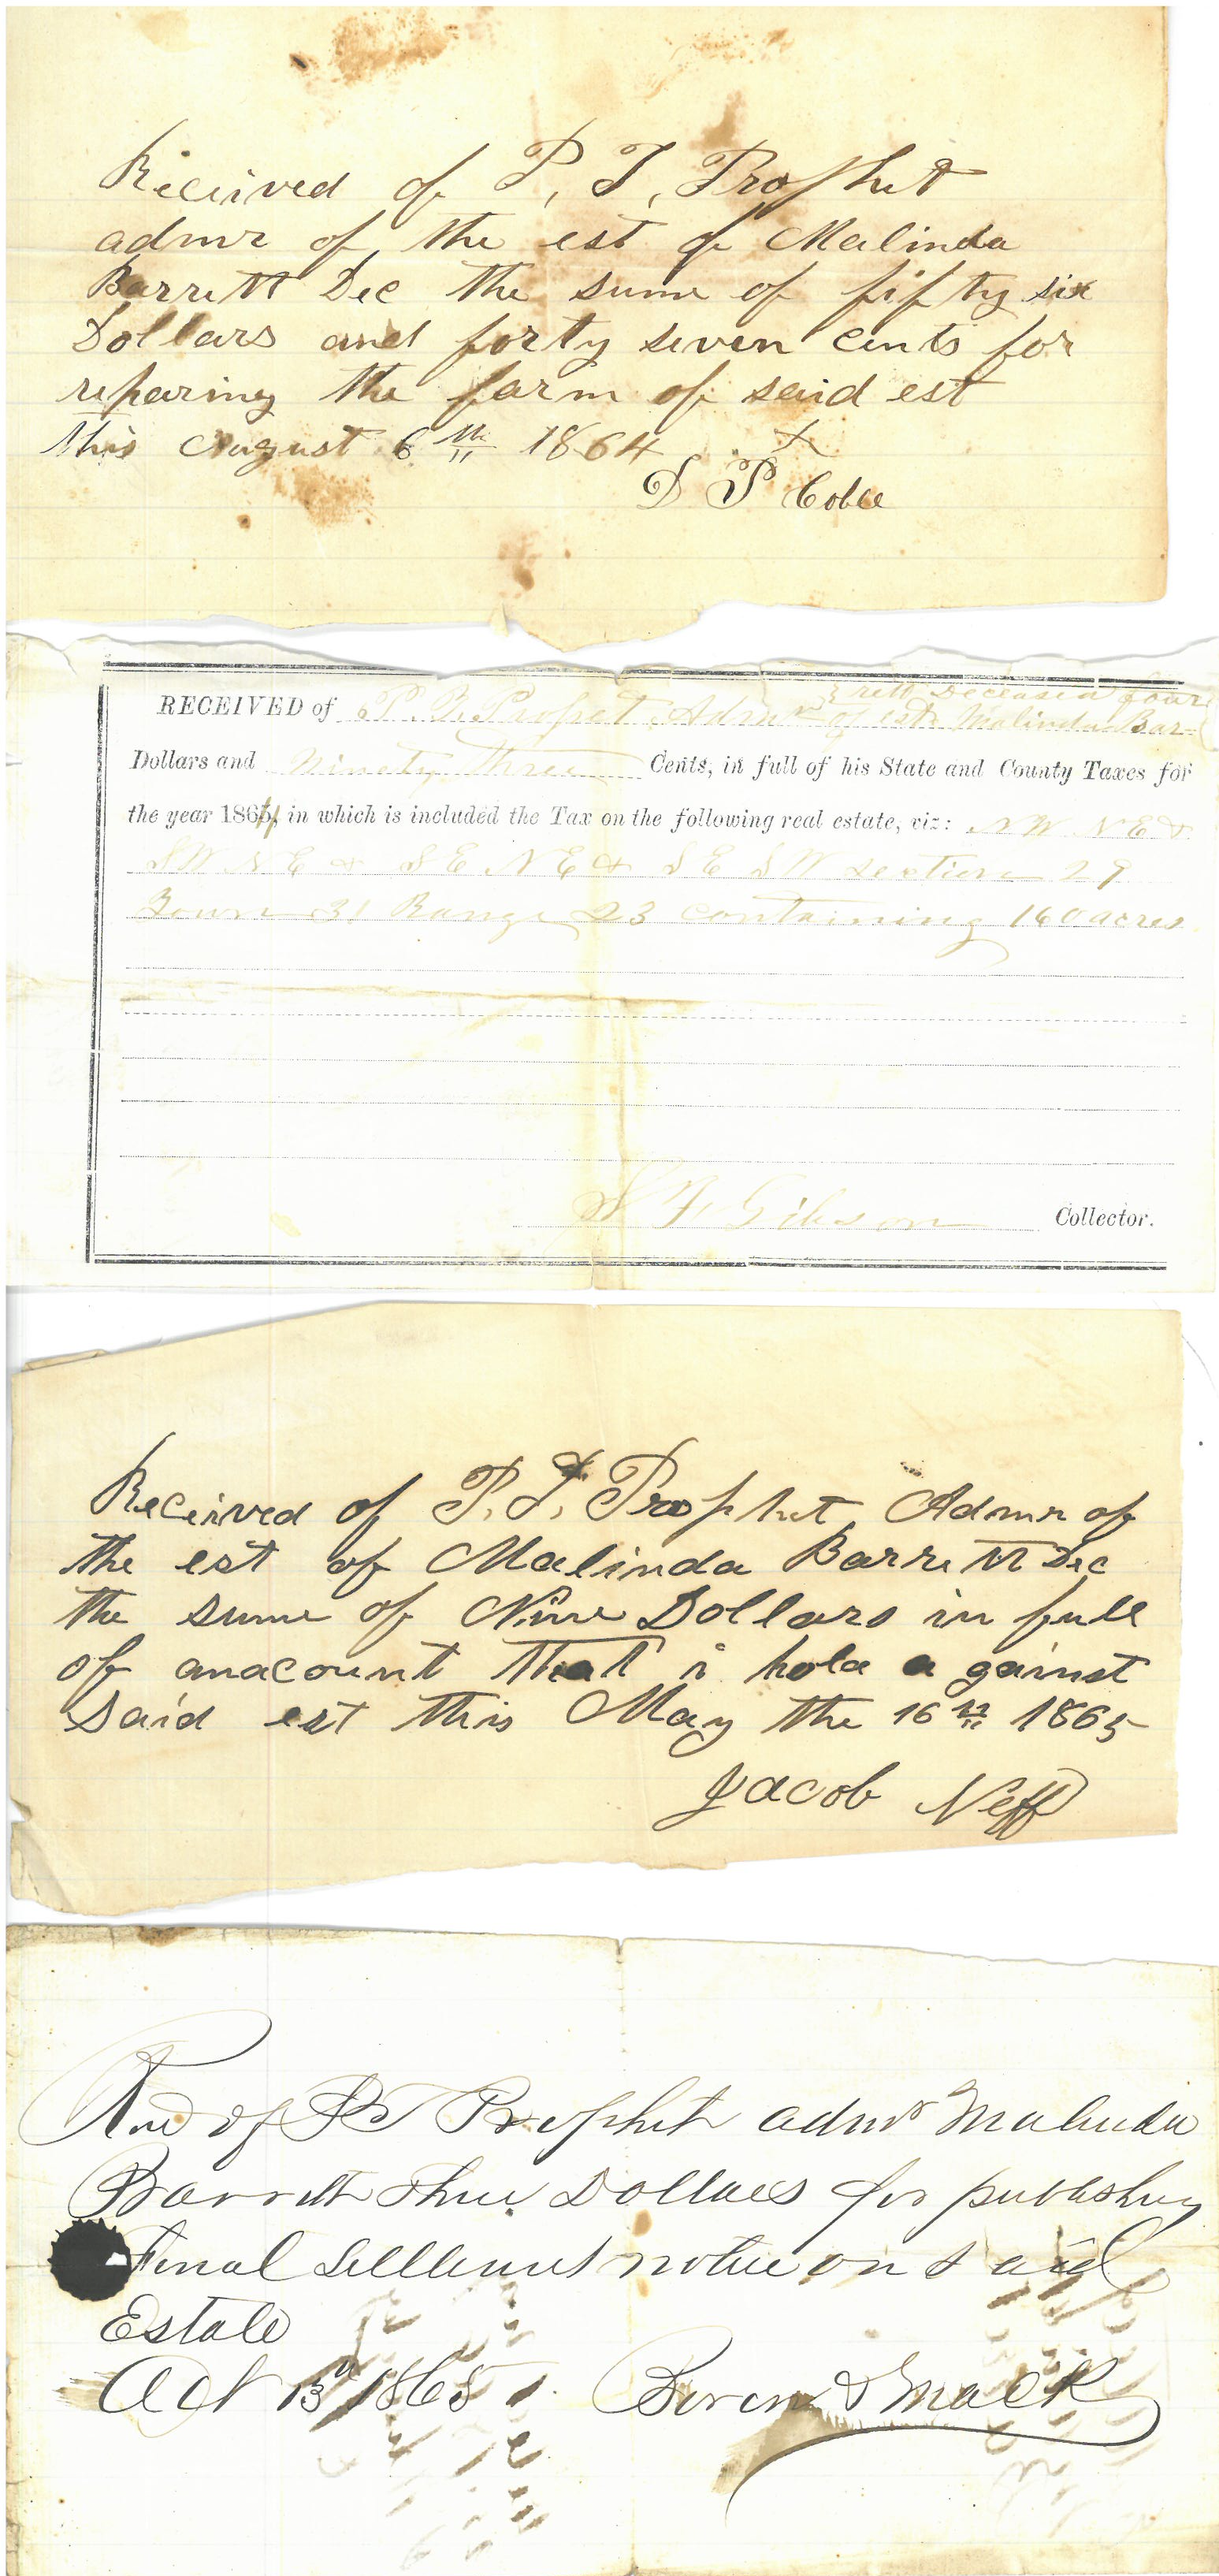 Received of P, T, Prophet
admr of the est of Malinda
Barrett Dec the sume of fifty six
Dollars and forty seven cents for
reparing the farm of said est
this August 6th 1864
X
D P Coble
rett Deceased four
RECEIVED of P. T. Prophet Admr of est Malinda Bar-
Dollars and Ninety three Cents, in full of his State and County Taxes for
the year 1864, in which is included the Tax on the following real estate, viz: NW NE &
SW NE & SE NE & SE SW section 29
Town 31 Range 23 containing 160 acres
Gibson Collector.
Received of P. T. Prophet Admr of
the est of Malinda Barrett Dec
the sume of Nine Dollars in full
of anacount that i hold a gainst
said est this May the 16th 1865
Jacob Neff
Recd of P T Prophet admr Malinda
Barrett Three Dollars for publishing
Final Settlement notice on said
Estate
Oct 13th 1865 Boren & Mack